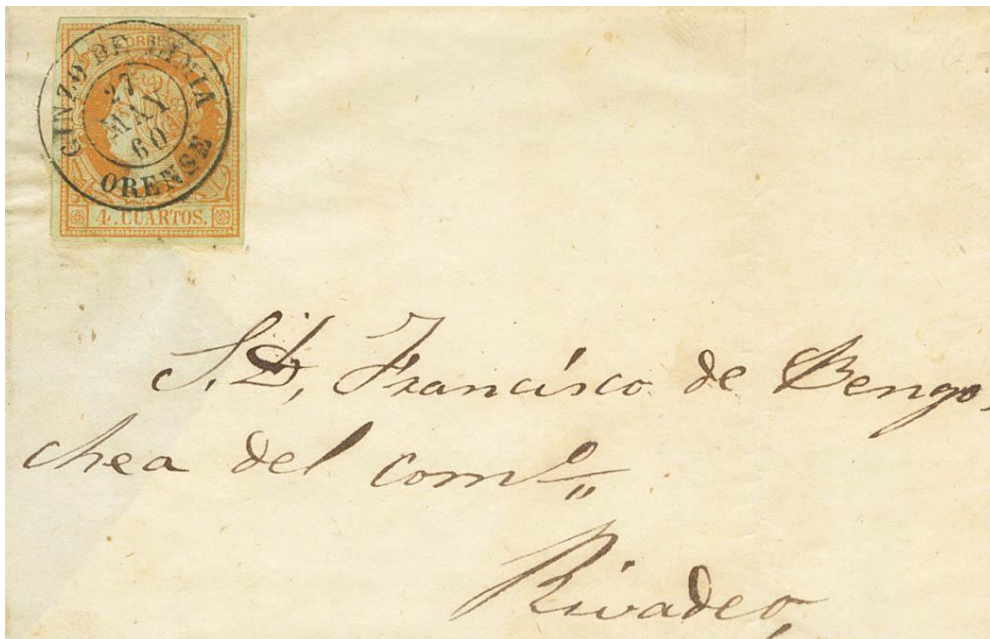 CORREOS
GINZO DE LIMIA
27
MAY
60
ORENSE
4. CUARTOS.
S. D, Francisco de Bengo-
chea del com.º
Rivadeo,